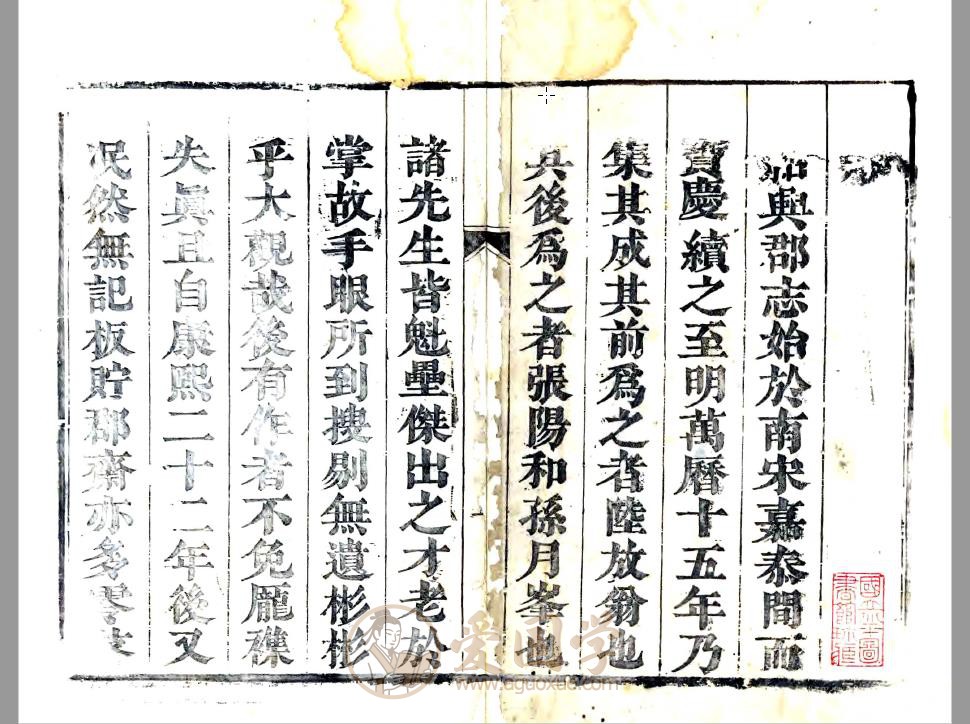 紹興郡志始於南宋嘉泰間而
寶慶續之至明萬曆十五年乃
集其成其前爲之者陸放翁也
其後爲之者張陽和孫月峯也
諸先生皆魁壘傑出之才老於
掌故手眼所到搜剔無遺彬彬
乎大觀哉後有作者不免龐襍
失眞且自康熙二十二年後又
泯然無記板貯郡齋亦多零
爱国学
www.aguoxue.com